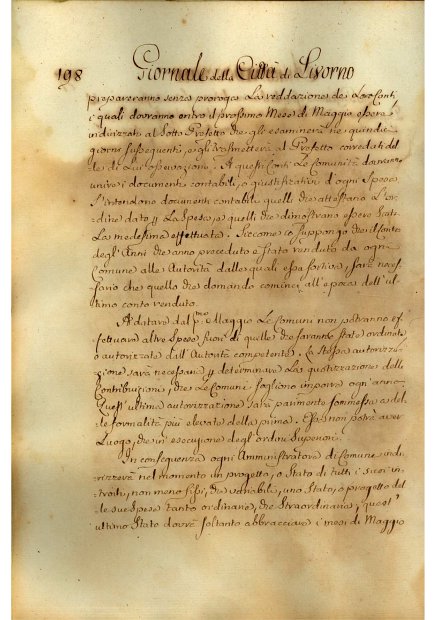 198 Giornale della Città di Livorno
prepareranno senza proroga La reddazione de Loro Conti
i quali dovranno entro il prossimo Mese di Maggio essere
indirizzati al Sotto Prefetto che gli esaminerà ne quindici
giorni susseguenti, e gli trasmetterà al Prefetto corredati del
le di Lui osservazioni. A questi Conti Le Comunità dovranno
unire i documenti contabili, o giustificativi d'ogni Spesa
S'intendono documenti contabili quelli che attestano L'or
dine dato p La Spesa, e quelli che dimostrano essere Stata
La medesima effettuata. Siccome io suppongo che il Conto
degl'Anni che anno preceduto è Stato renduto da ogni
Comune alle Autorità dalle quali essa sortiva, sarà neces
sario che quello che domando cominci all'epoca dell'ul
timo conto renduto.
A datare dal pmo Maggio Le Comuni non potranno ef
fettuare altre Spese fuori di quelle che saranno State ordinate
o autorizzate dall'Autorità competente. La Stessa autorizza
zione sarà necessaria p determinare La quotizzazione delle
Contribuzioni, che Le Comuni sogliono imporre ogni anno.
Quest'ultima autorizzazione sarà parimente sommessa a del
le formalità più elevate della prima. Essa non potrà aver
Luogo, che in esecuzione degl'ordini Superiori.
In conseguenza ogni Amministratore di Comune indi
rizzerà nel momento un progetto, o Stato di tutti i suoi in
troiti, non meno fissi, che variabili, uno Stato, o progetto del
le sue Spese tanto ordinarie, che Straordinarie, quest'
ultimo Stato dovrà soltanto abbracciare i mesi di Maggio